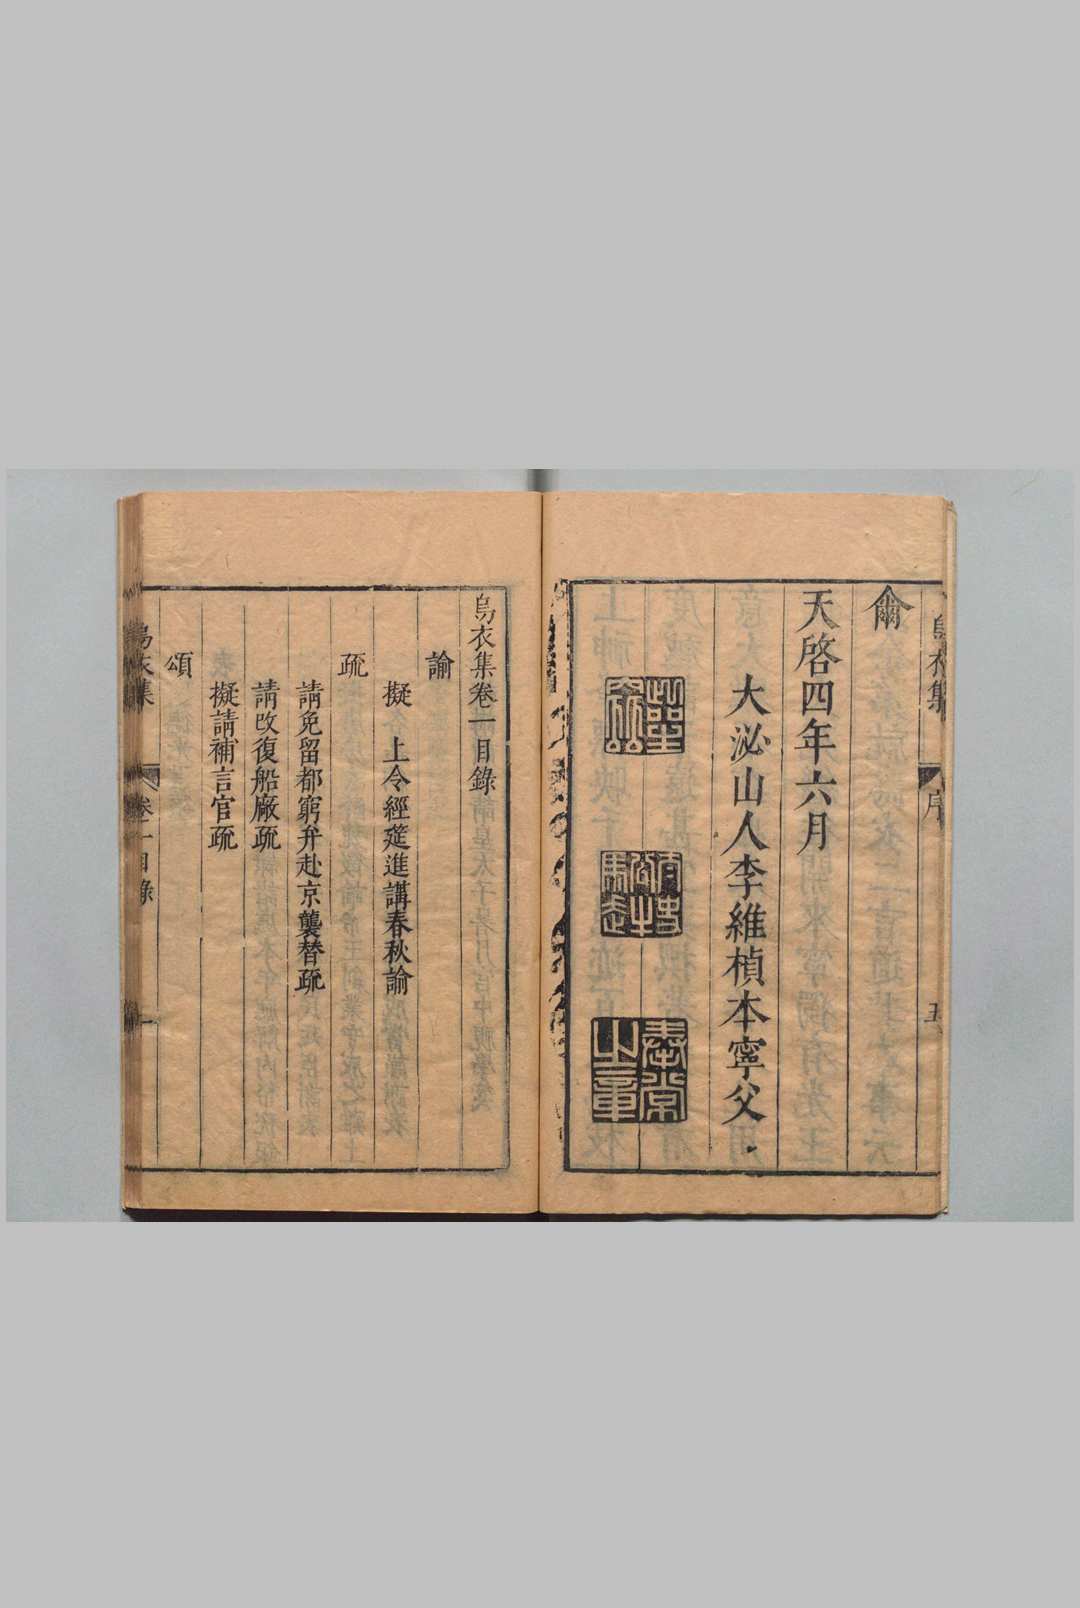 爾
天啓四年六月
大泌山人李維楨本寧父
太常之章
烏衣集
序
五
烏衣集卷一目錄
諭
擬 上令經筵進講春秋諭
疏
請免留都窮弁赴京襲替疏
請改復船廠疏
擬請補言官疏
頌
烏衣集
卷一目錄
一